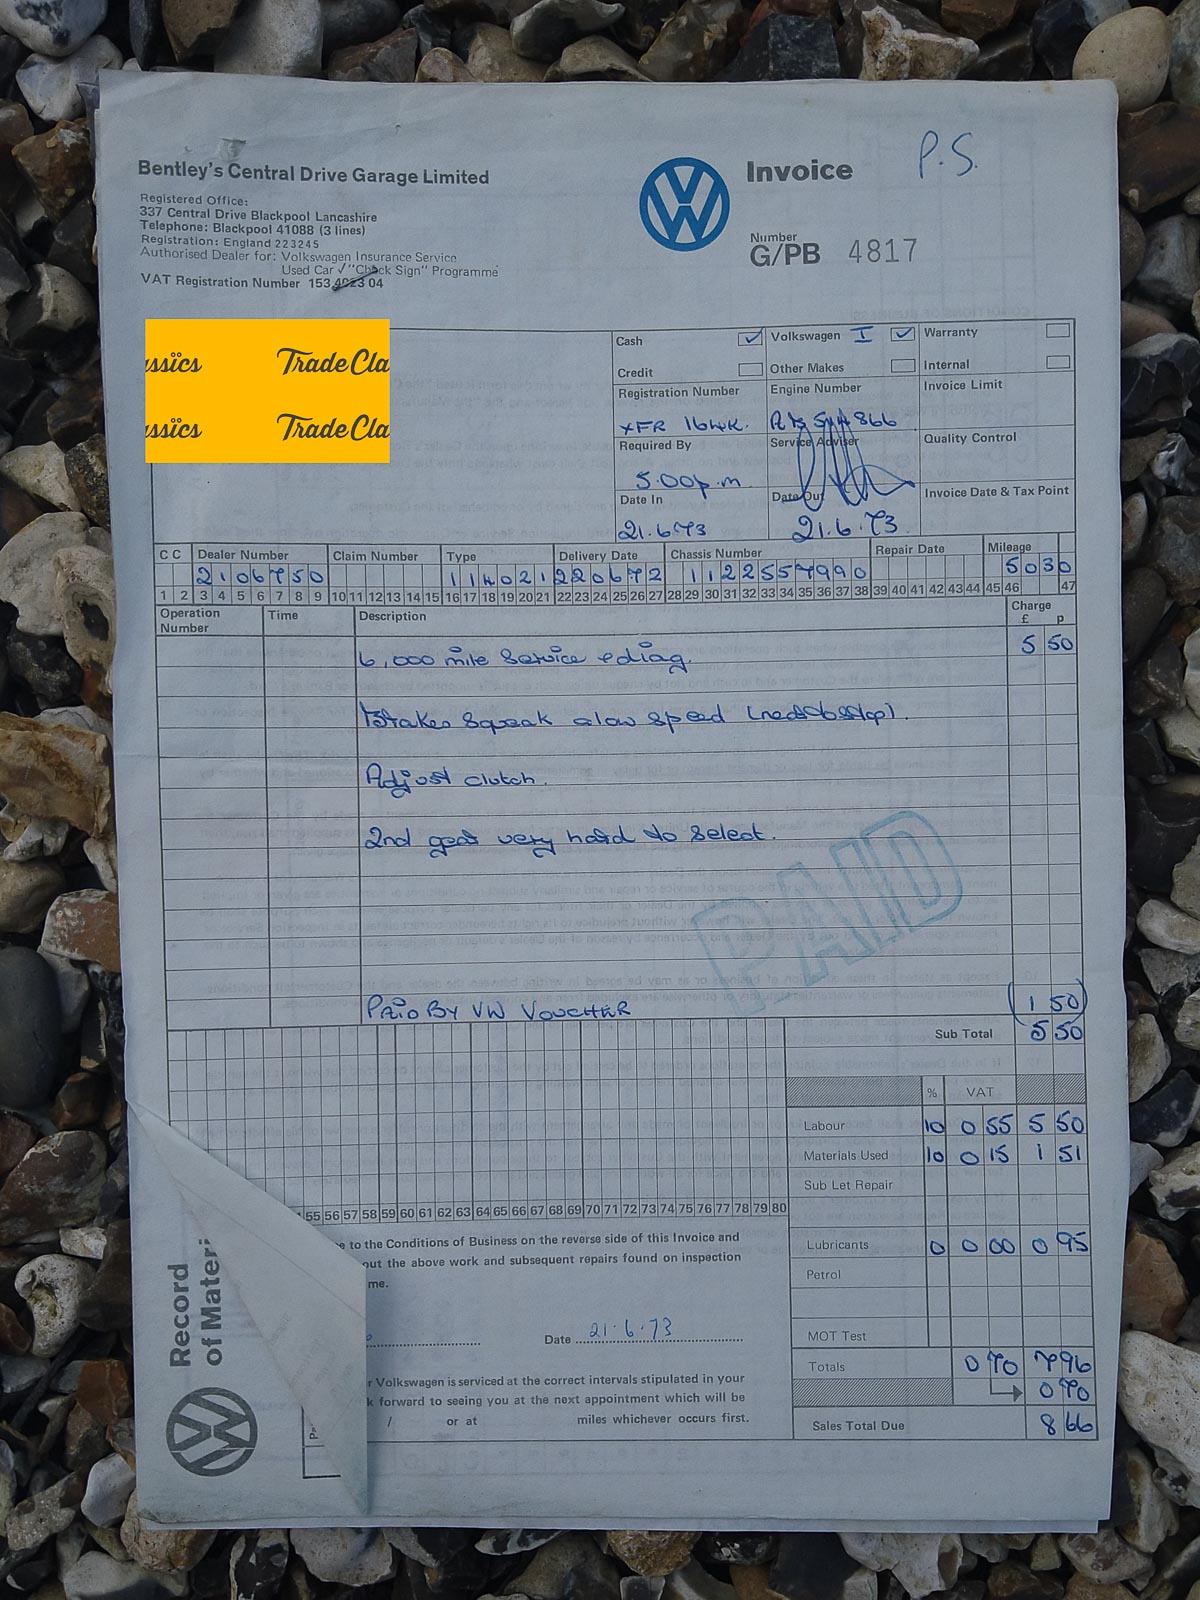 P.S.
Bentley's Central Drive Garage Limited
Invoice
Registered Office:
337 Central Drive Blackpool Lancashire
Telephone: Blackpool 41088 (3 lines)
Registration: England 223245
Authorised Dealer for: Volkswagen Insurance Service
Used Car √ "Check Sign" Programme
VAT Registration Number 153 4923 04
Number
G/PB 4817
ssïcs TradeCla
ssïcs TradeCla
Cash Volkswagen I Warranty
Credit Other Makes Internal
Registration Number Engine Number Invoice Limit
XFR 164K.
Required By Service Adviser Quality Control
5.00p.m
Date In Date Out Invoice Date & Tax Point
21.6.73 21.6.73.
CC Dealer Number Claim Number Type Delivery Date Chassis Number Repair Date Mileage
2106750 114021 220672 1122557990 5030
1 2 3 4 5 6 7 8 9 10 11 12 13 14 15 16 17 18 19 20 21 22 23 24 25 26 27 28 29 30 31 32 33 34 35 36 37 38 39 40 41 42 43 44 45 46 47
Operation Number Time Description Charge £ p
6,000 mile Service + diag. 5 50
Brakes Squeak a low speed
Adjust clutch.
2nd gear very hard to select.
PAID
PAID BY VW VOUCHER (1 50)
Sub Total 5 50
% VAT
Labour 10 0 55 5 50
Materials Used 10 0 15 1 51
Sub Let Repair
55 56 57 58 59 60 61 62 63 64 65 66 67 68 69 70 71 72 73 74 75 76 77 78 79 80
Lubricants 0 0 00 0 95
Petrol
MOT Test
Totals 0 70 7 96
0 70
Sales Total Due 8 66
e to the Conditions of Business on the reverse side of this Invoice and
out the above work and subsequent repairs found on inspection
me.
Date 21.6.73
r Volkswagen is serviced at the correct intervals stipulated in your
k forward to seeing you at the next appointment which will be
/ or at miles whichever occurs first.
Record
of Materi